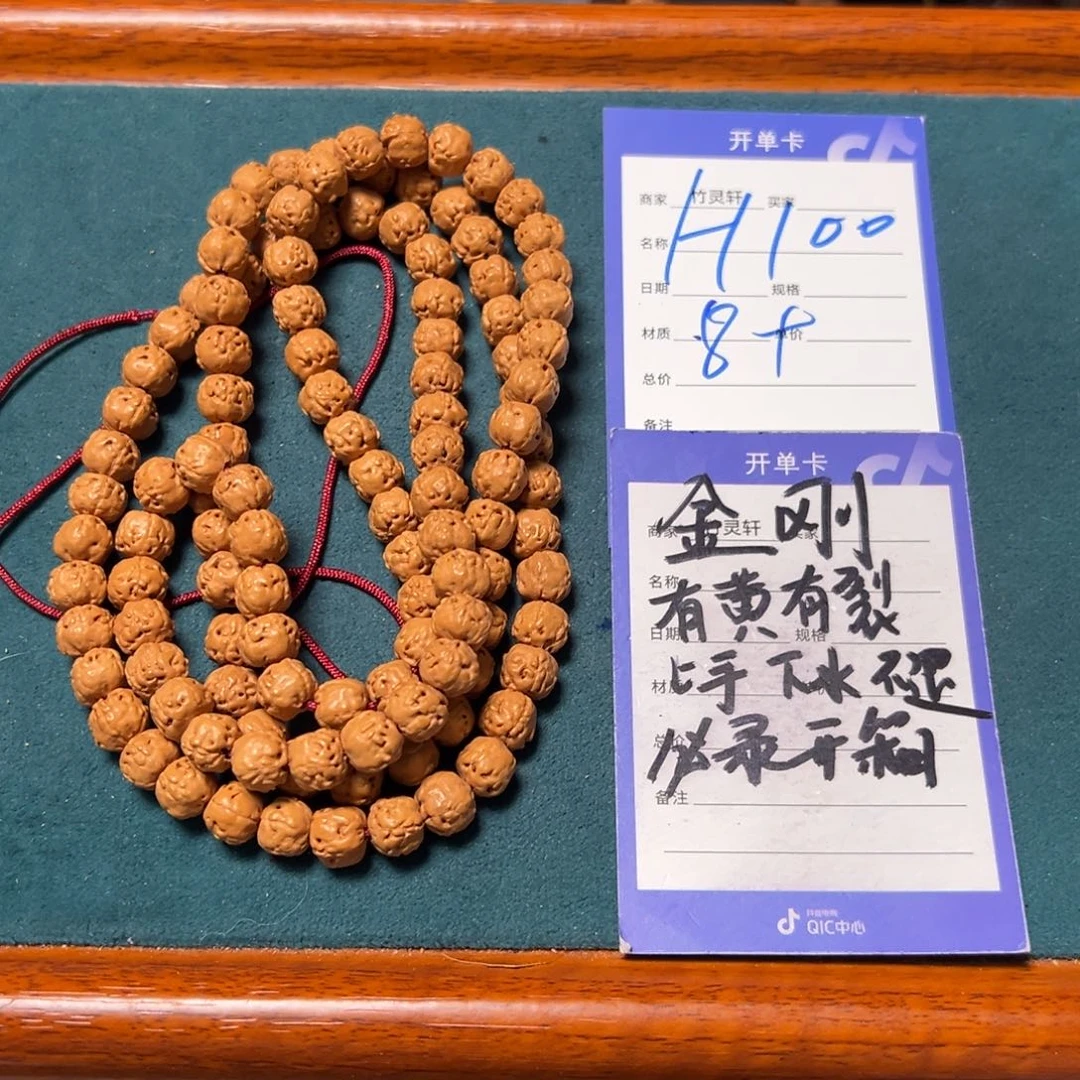 开单卡
商家 竹灵轩 买家
H100
名称
日期 规格
8+
材质 单价
总价
备注
开单卡
金刚
商家 灵轩
名称
有黄有裂
日期 规格
上手下水不退
必录开箱
备注
抖音电商
QIC中心